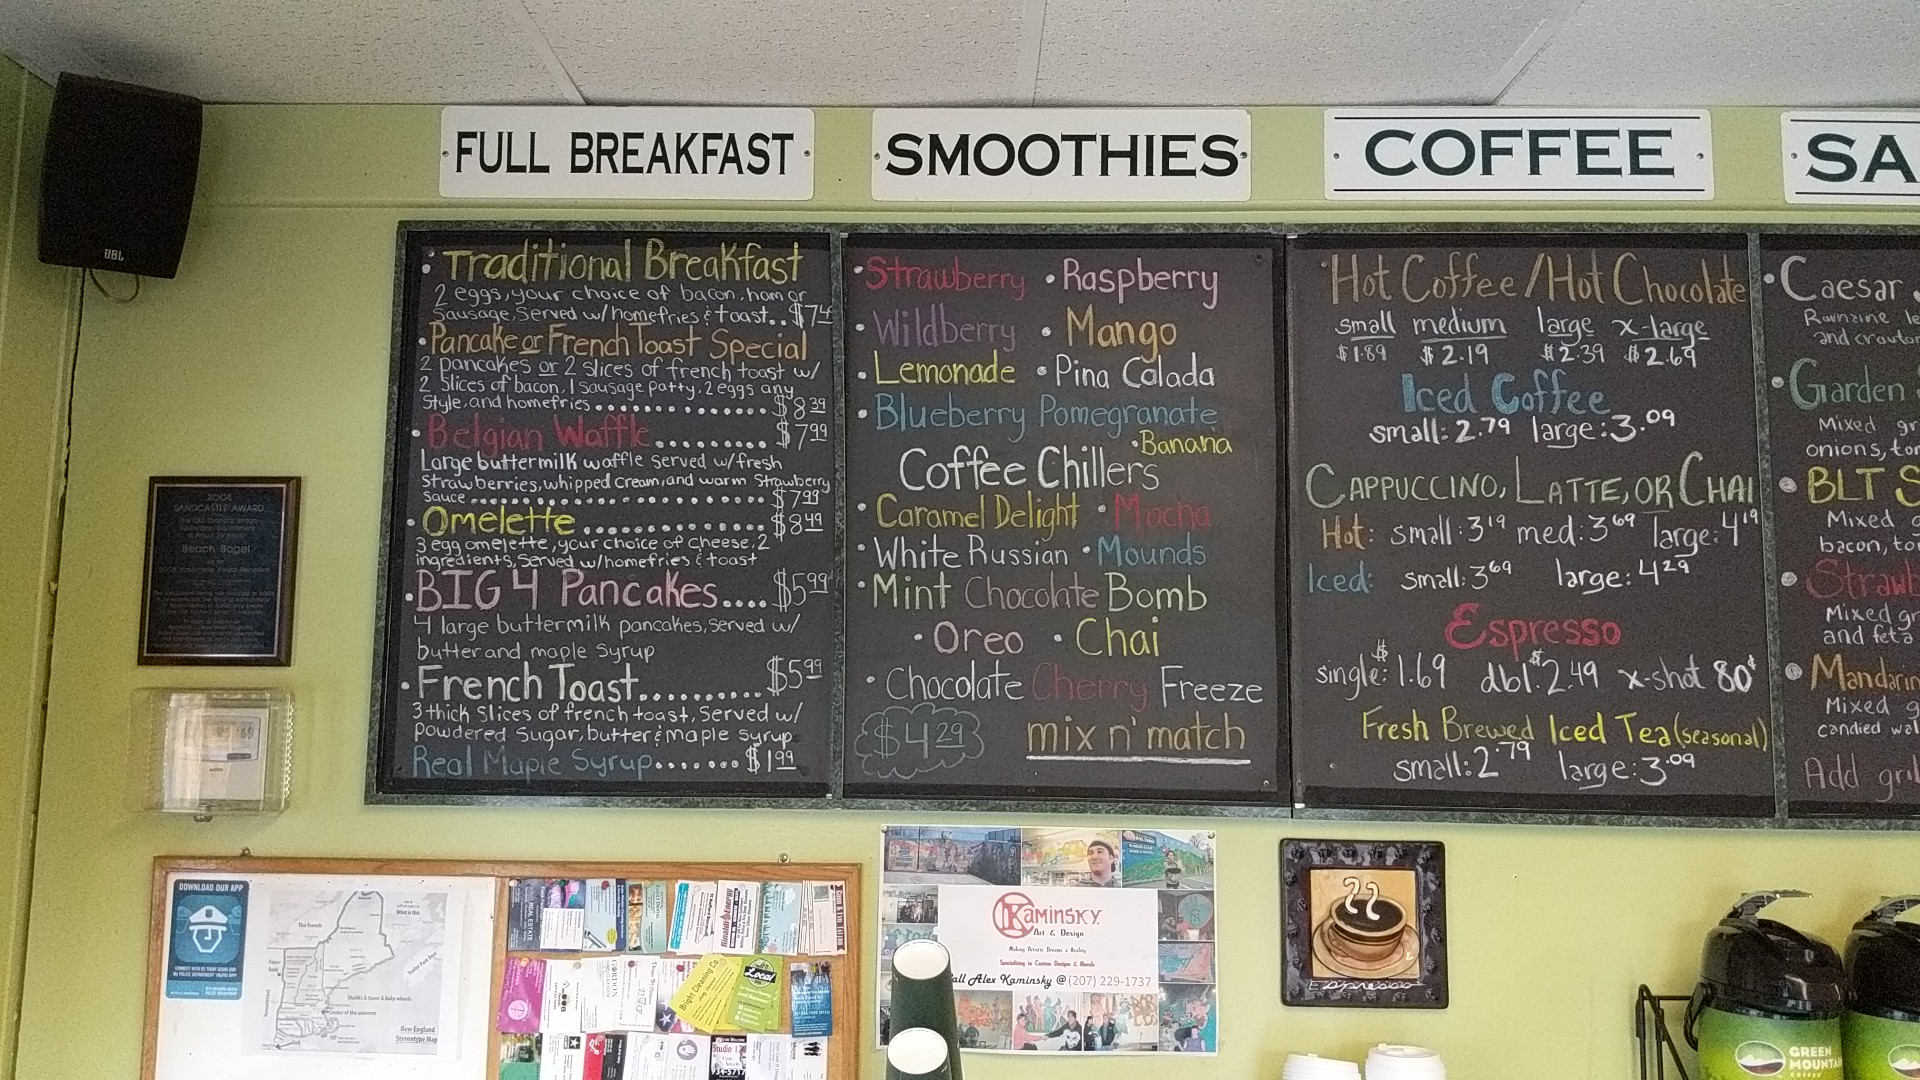 FULL BREAKFAST
Traditional Breakfast
2 eggs, your choice of bacon, ham or
Sausage, Served w/homefries & toast..
Pancake or French Toast Special
2 pancakes or 2 slices of french toast w/
2 slices of bacon, 1 sausage patty, 2 eggs any
Style, and homefries............ $8.39
Belgian Waffle......... $7.99
Large buttermilk waffle served w/fresh
Strawberries, whipped cream, and warm Strawberry
Sauce.......................... $7.99
Omelette............... $8.49
3 egg omelette, your choice of cheese, 2
ingredients, Served w/homefries & toast
BIG 4 Pancakes.... $5.99
4 large buttermilk pancakes, served w/
butter and maple Syrup
French Toast.......... $5.99
3 thick Slices of french toast, Served w/
powdered Sugar, butter & maple syrup
Real Maple Syrup....... $1.99
SMOOTHIES
•Strawberry •Raspberry
•Wildberry •Mango
•Lemonade •Pina Colada
•Blueberry Pomegranate
•Banana
Coffee Chillers
•Caramel Delight •Mocha
•White Russian •Mounds
•Mint Chocolate Bomb
•Oreo •Chai
•Chocolate Cherry Freeze
$4.29 mix n' match
COFFEE
Hot Coffee/Hot Chocolate
small medium large x-large
$1.89 $2.19 $2.39 $2.69
Iced Coffee
small: 2.79 large: 3.09
CAPPUCCINO, LATTE, OR CHAI
Hot: small: 3.19 med: 3.69 large: 4.19
Iced: small: 3.69 large: 4.29
Espresso
single: $1.69 dbl: $2.49 x-shot 80¢
Fresh Brewed Iced Tea (seasonal)
small: 2.79 large: 3.09
SA
•Caesar
and crouton
•Garden
Mixed gr
onions, to
•BLT S
Mixed g
bacon, to
•Strawb
Mixed gr
and feta
•Mandarin
Mixed g
candied wal
Add gril
JBL
2008
SANDCASTLE AWARD
Beach Bagel
DOWNLOAD OUR APP
The French
What is this
Shacks & tuxes & baby wheels
Center of the universe
New England
Stereotype Map
KAMINSKY
Art & Design
Making Artistic Dreams a Reality
Specializing in Custom Designs & Murals
Call Alex Kaminsky @ (207) 229-1737
GORDON
Bright Cleaning Co.
Local
Studio 12
934-5717
Espresso
GREEN
MOUNTAIN
COFFEE